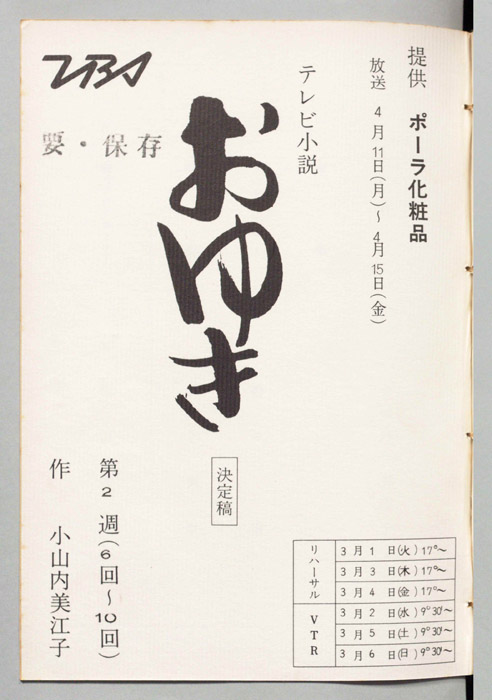 提供 ポーラ化粧品
放送 4月11日(月)~4月15日(金)
テレビ小説
おゆき
決定稿
TBS
要・保存
第2週(6回~10回)
作 小山内美江子
リハーサル
3月1日(火)17°~
3月3日(木)17°~
3月4日(金)17°~
VTR
3月2日(水)9°30'~
3月5日(土)9°30'~
3月6日(日)9°30'~